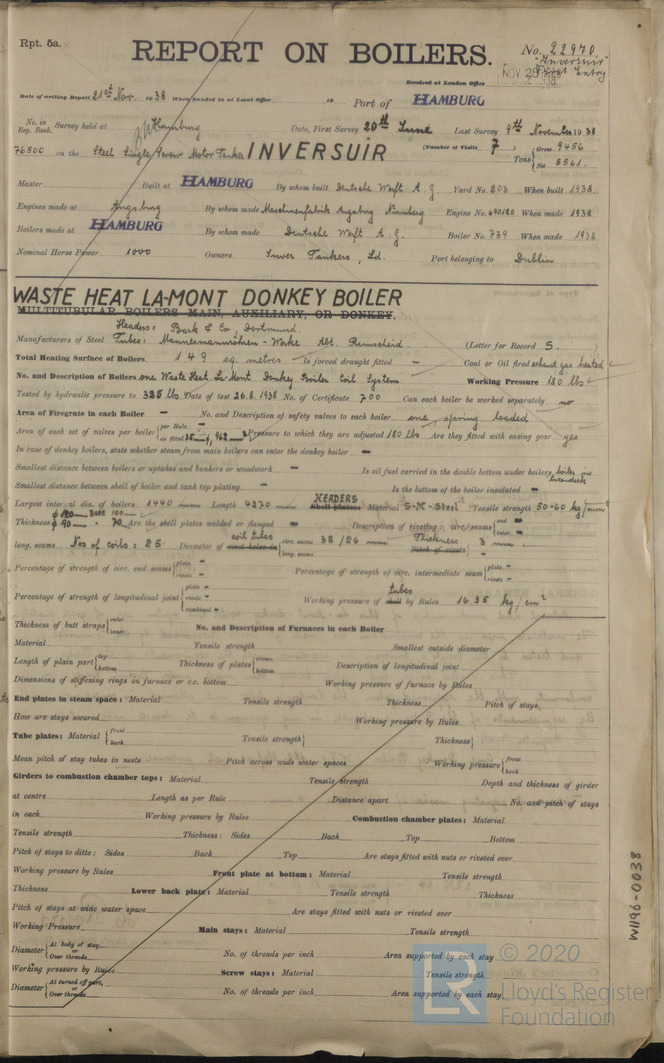 Rpt. 5a.
No. 22970
REPORT ON BOILERS.
"Inversuir"
First Entry
Received at London Office
NOV 29 1938
Date of writing Report 21st Nov. 1938 When handed in at Local Office 19 Port of HAMBURG
No. in Reg. Book. Survey held at Hamburg Date, First Survey 20th June Last Survey 9th November 1938
76500 on the Steel Single Screw Motor Tanker INVERSUIR (Number of Visits 7) Tons { Gross 9456
Net 5561.
Master Built at HAMBURG By whom built Deutsche Werft A.G Yard No. 203 When built 1938
Engines made at Augsburg By whom made Maschinenfabrik Augsburg Nürnberg Engine No. 690180 When made 1938
Boilers made at HAMBURG By whom made Deutsche Werft A.G. Boiler No. 739 When made 1938
Nominal Horse Power 1000 Owners Inver Tankers, Ld. Port belonging to Dublin
WASTE HEAT LA-MONT DONKEY BOILER
MULTITUBULAR BOILERS MAIN, AUXILIARY, OR DONKEY.
Headers: & Co, Dortmund
Manufacturers of Steel Tubes: Mannesmannröhren-Werke Abt. Remscheid. (Letter for Record S.)
Total Heating Surface of Boilers 149 sq. metres Is forced draught fitted - Coal or Oil fired exhaust gas heated
No. and Description of Boilers one Waste Heat La-Mont Donkey Boiler Coil System Working Pressure 180 lbs
Tested by hydraulic pressure to 325 lbs Date of test 26.8.1938 No. of Certificate 700 Can each boiler be worked separately no
Area of Firegrate in each Boiler - No. and Description of safety valves to each boiler one, spring loaded
Area of each set of valves per boiler { per Rule -
as fitted 35 mm φ, 962 mm² Pressure to which they are adjusted 180 lbs Are they fitted with easing gear yes
In case of donkey boilers, state whether steam from main boilers can enter the donkey boiler -
Smallest distance between boilers or uptakes and bunkers or woodwork - Is oil fuel carried in the double bottom under boilers boiler in
Smallest distance between shell of boiler and tank top plating - Is the bottom of the boiler insulated -
HEADERS
Largest internal dia. of boilers 1440 mm Length 4270 mm Shell plates: Material S-M-Steel Tensile strength 50-60 kg/mm²
Thickness Are the shell plates welded or flanged - Description of riveting: circ. seams { end -
inter. -
coil tubes
Thickness
long. seams Nos of coils: 25 Diameter of rivet holes in { circ. seams 32/26 mm Pitch of rivets { 3 mm.
long. seams
Percentage of strength of circ. end seams { plate -
rivets - Percentage of strength of circ. intermediate seam { plate -
rivets -
Percentage of strength of longitudinal joint { plate -
rivets -
combined -
tubes
Working pressure of shell by Rules 16.38 kg/cm²
Thickness of butt straps { outer
inner No. and Description of Furnaces in each Boiler
Material Tensile strength Smallest outside diameter
Length of plain part { top
bottom Thickness of plates { crown
bottom Description of longitudinal joint
Dimensions of stiffening rings on furnace or c.c. bottom Working pressure of furnace by Rules
End plates in steam space: Material Tensile strength Thickness Pitch of stays
How are stays secured Working pressure by Rules
Tube plates: Material { front
back Tensile strength { Thickness {
Mean pitch of stay tubes in nests Pitch across wide water spaces Working pressure { front
back
Girders to combustion chamber tops: Material Tensile strength Depth and thickness of girder
at centre Length as per Rule Distance apart No. and pitch of stays
in each Working pressure by Rules Combustion chamber plates: Material
Tensile strength Thickness: Sides Back Top Bottom
Pitch of stays to ditto: Sides Back Top Are stays fitted with nuts or riveted over
Working pressure by Rules Front plate at bottom: Material Tensile strength
Thickness Lower back plate: Material Tensile strength Thickness
Pitch of stays at wide water space Are stays fitted with nuts or riveted over
Working Pressure Main stays: Material Tensile strength
Diameter { At body of stay,
or
Over threads No. of threads per inch Area supported by each stay
Working pressure by Rules Screw stays: Material Tensile strength
Diameter { At turned off part,
or
Over threads No. of threads per inch Area supported by each stay
W1196-0038
LR
© 2020
Lloyd's Register
Foundation